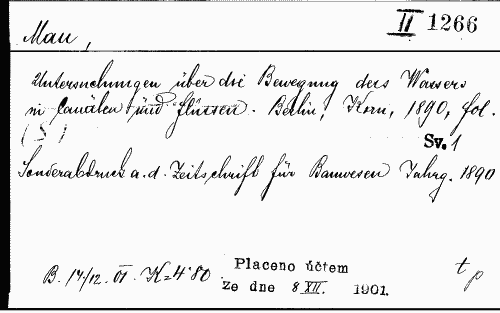 II 1266
Mau,
Untersuchungen über die Bewegung des Wassers
in Canälen und Flüssen. Berlin, Korn, 1890, fol.
(S )
Sv. 1
Sonderabdruck a. d. Zeitschrift für Bauwesen Jahrg. 1890
B. 17/12. 01. K = 4·80
Placeno účtem
ze dne 8 XII. 1901.
t
p